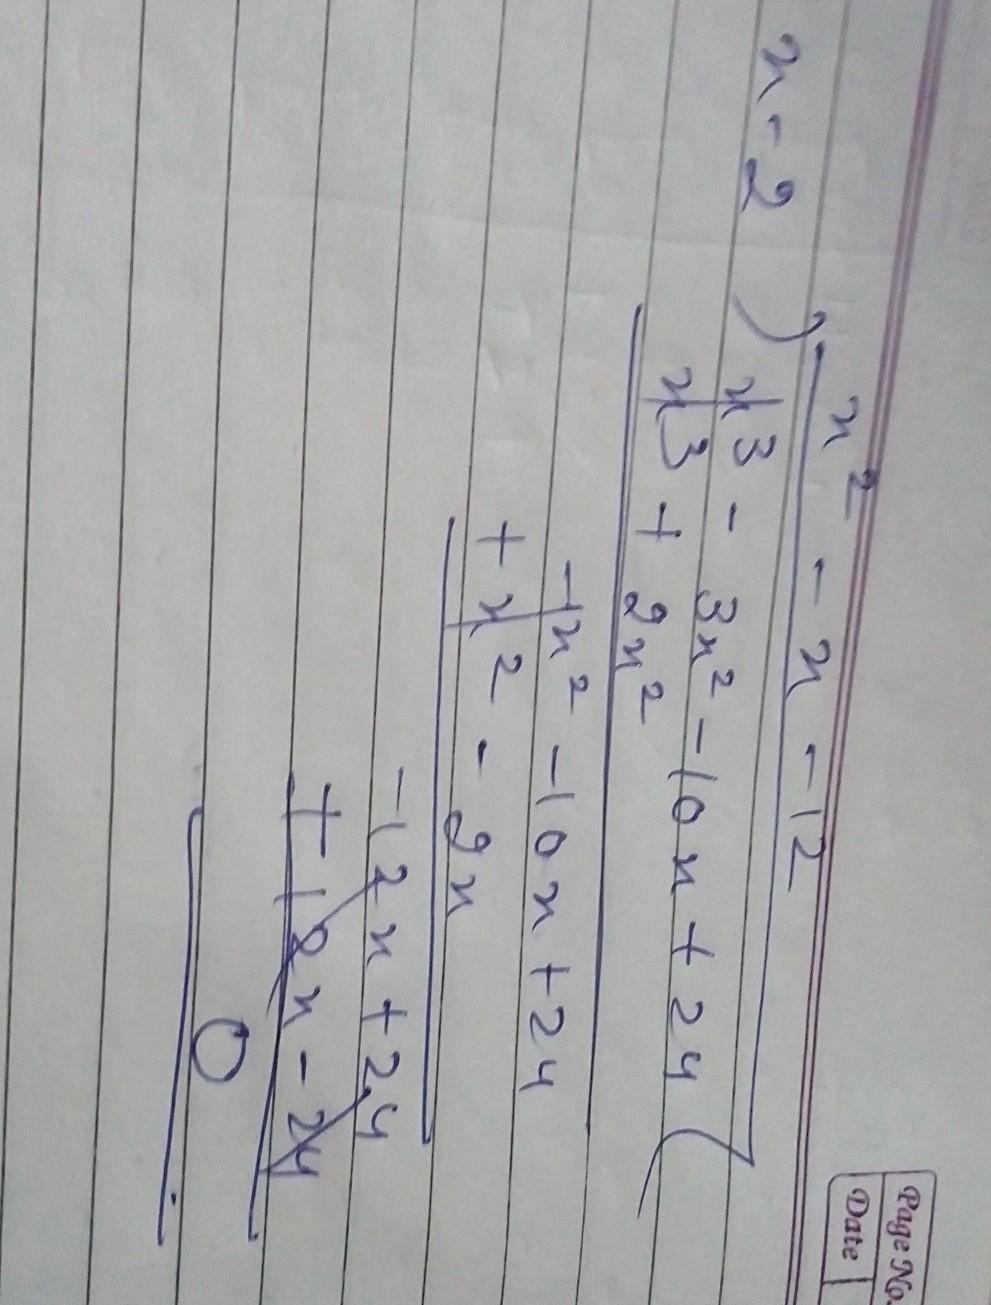 Page No.
Date
x² - x - 12
x - 2 ) x³ - 3x² - 10x + 24 (
x³ + 2x²
-1x² - 10x + 24
+ x² - 2x
-12x + 24
+ 12x - 24
0